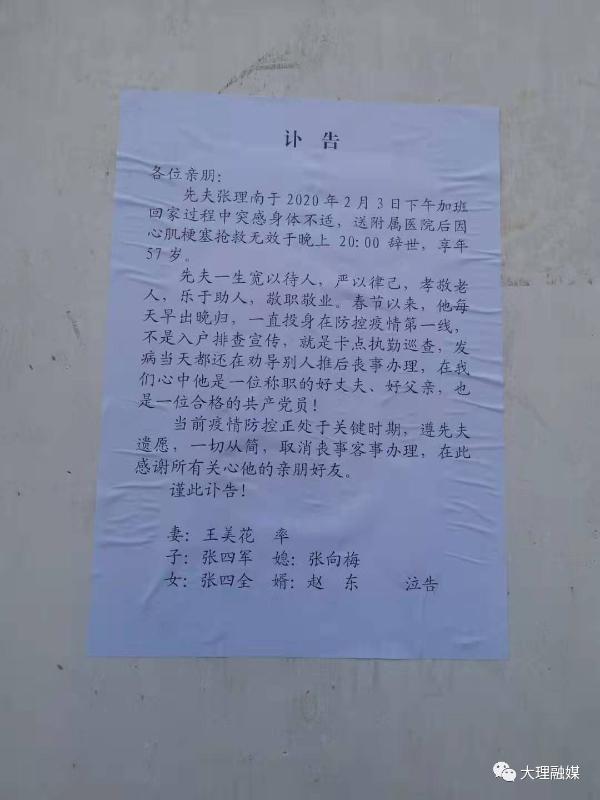 讣 告
各位亲朋：
先夫张理南于2020年2月3日下午加班
回家过程中突感身体不适，送附属医院后因
心肌梗塞抢救无效于晚上 20:00 辞世，享年
57岁。
先夫一生宽以待人，严以律己，孝敬老
人，乐于助人，敬职敬业。春节以来，他每
天早出晚归，一直投身在防控疫情第一线，
不是入户排查宣传，就是卡点执勤巡查，发
病当天都还在劝导别人推后丧事办理，在我
们心中他是一位称职的好丈夫、好父亲，也
是一位合格的共产党员！
当前疫情防控正处于关键时期，遵先夫
遗愿，一切从简，取消丧事客事办理，在此
感谢所有关心他的亲朋好友。
谨此讣告！
妻：王美花 率
子：张四军 媳：张向梅
女：张四全 婿：赵 东 泣告
大理融媒